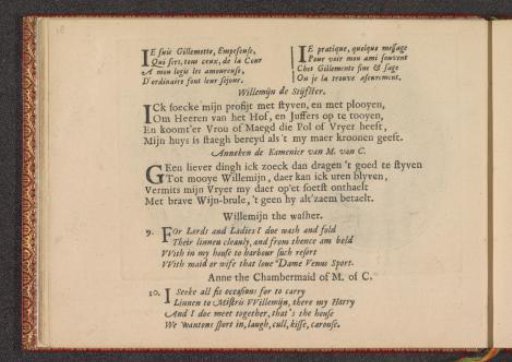 IE suis Gillemette, Empeseuse,
Qui sers, tous ceux, de la Cour
A mon logis les amoureuse,
D'ordinaire font leur sejour.
IE pratique, quelque message
Pour voir mon ami souvent
Chez Gillemette fine & sage
Ou je la trouve asseurement.
Willemijn de Stijfster.
ICk soecke mijn profijt met styven, en met plooyen,
Om Heeren van het Hof, en Juffers op te tooyen,
En koomt'er Vrou of Maegd die Pol of Vryer heeft,
Mijn huys is staegh bereyd als 't my maer kroonen geeft.
Anneken de Kamenier van M. van C.
GEen liever dingh ick zoeck dan dragen 't goed te styven
Tot mooye Willemijn, daer kan ick uren blyven,
Vermits mijn Vryer my daer op'et soetst onthaelt
Met brave Wijn-brule, 't geen hy alt'zaem betaelt.
Willemijn the washer.
9. FOr Lords and Ladies I doe wash and fold
Their linnen cleanly, and from thence am bold
VVith in my house to harbour such resort
VVith maid or wife that loue Dame Venus Sport.
Anne the Chambermaid of M. of C.
10. I Seeke all fit occasions for to carry
Linnen to Mistris VVillemijn, there my Harry
And I doe meet together, that's the house
We wantons sport in, laugh, cull, kisse, carouse.